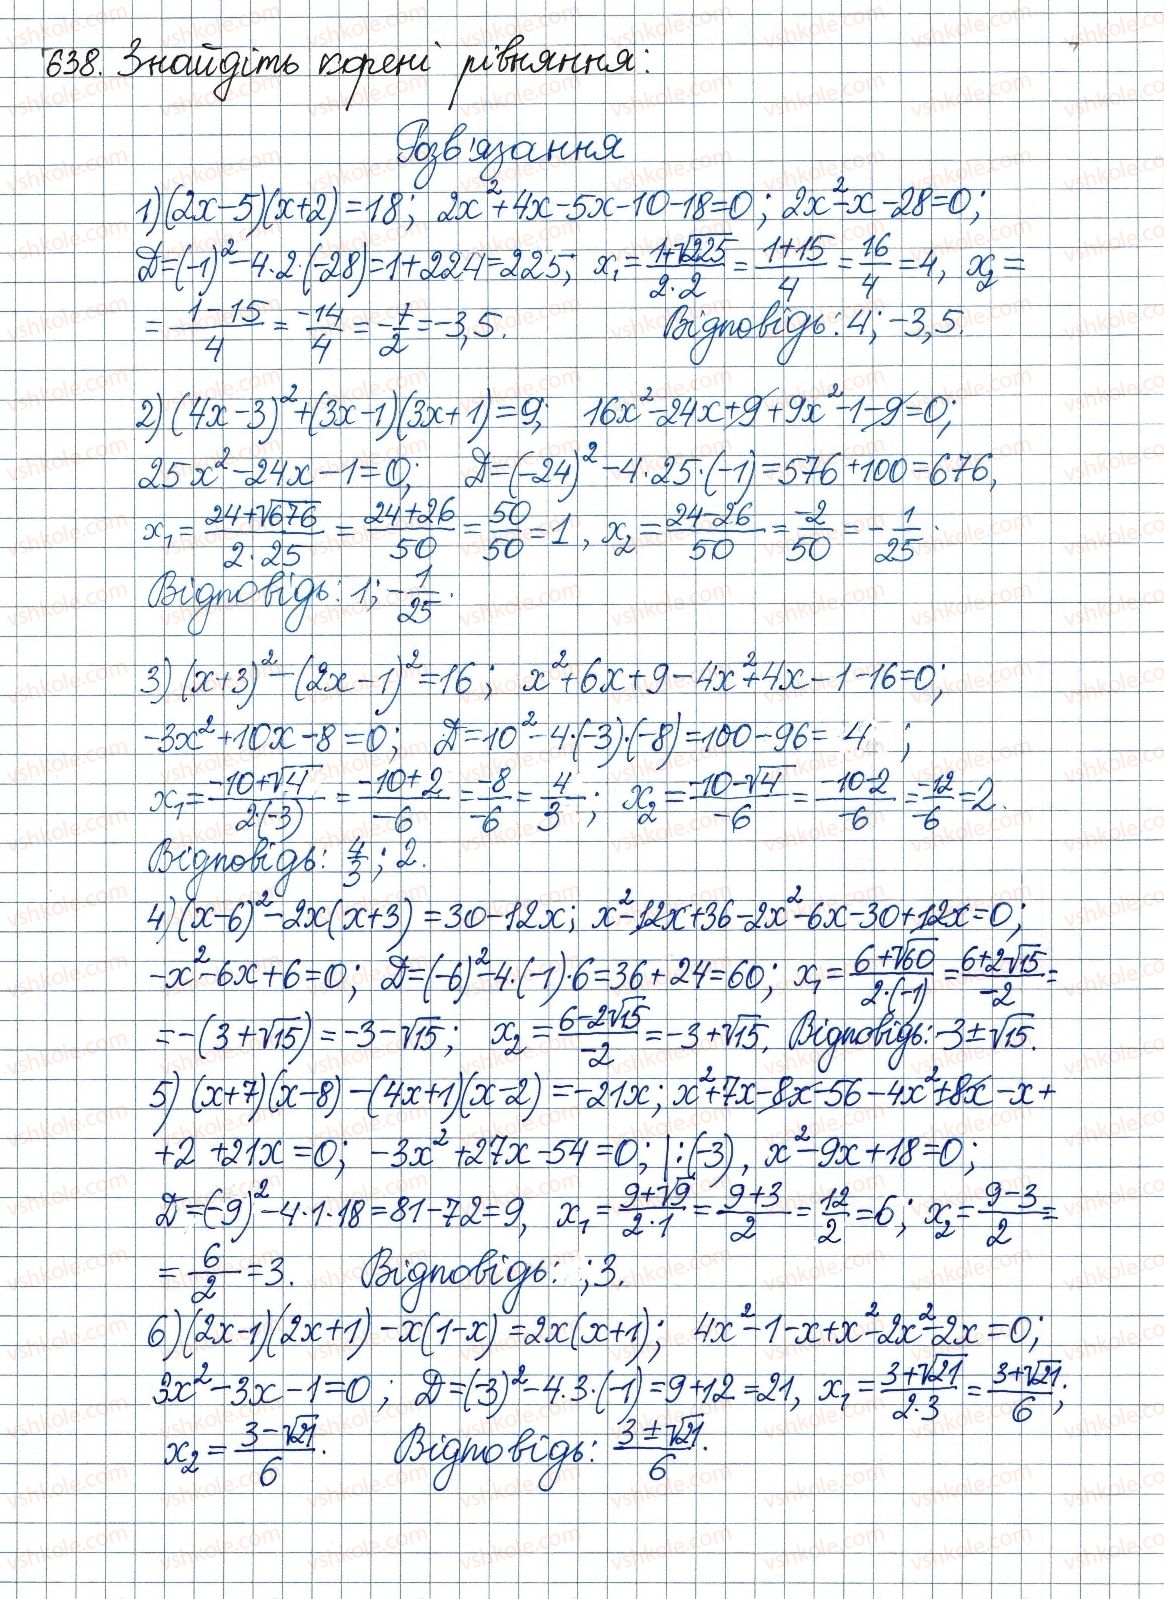 638. Знайдіть корені рівняння:
Розв'язання
1) (2x-5)(x+2)=18; 2x²+4x-5x-10-18=0; 2x²-x-28=0;
D=(-1)²-4·2·(-28)=1+224=225; x₁=(1+√225)/(2·2)=(1+15)/4=16/4=4, x₂=
=(1-15)/4=-14/4=-7/2=-3,5. Відповідь: 4; -3,5.
2) (4x-3)²+(3x-1)(3x+1)=9; 16x²-24x+9+9x²-1-9=0;
25x²-24x-1=0; D=(-24)²-4·25·(-1)=576+100=676,
x₁=(24+√676)/(2·25)=(24+26)/50=50/50=1, x₂=(24-26)/50=-2/50=-1/25.
Відповідь: 1; -1/25.
3) (x+3)²-(2x-1)²=16; x²+6x+9-4x²+4x-1-16=0;
-3x²+10x-8=0; D=10²-4·(-3)·(-8)=100-96=4;
x₁=(-10+√4)/(2·(-3))=(-10+2)/-6=-8/-6=4/3; x₂=(-10-√4)/-6=(-10-2)/-6=-12/-6=2.
Відповідь: 4/3; 2.
4) (x-6)²-2x(x+3)=30-12x; x²-12x+36-2x²-6x-30+12x=0;
-x²-6x+6=0; D=(-6)²-4·(-1)·6=36+24=60; x₁=(6+√60)/(2·(-1))=(6+2√15)/-2=
=-(3+√15)=-3-√15; x₂=(6-2√15)/-2=-3+√15, Відповідь: -3±√15.
5) (x+7)(x-8)-(4x+1)(x-2)=-21x; x²+7x-8x-56-4x²+8x-x+
+2+21x=0; -3x²+27x-54=0; |:(-3), x²-9x+18=0;
D=(-9)²-4·1·18=81-72=9, x₁=(9+√9)/(2·1)=(9+3)/2=12/2=6; x₂=(9-3)/2=
=6/2=3. Відповідь: ;3.
6) (2x-1)(2x+1)-x(1-x)=2x(x+1); 4x²-1-x+x²-2x²-2x=0;
3x²-3x-1=0; D=(-3)²-4·3·(-1)=9+12=21, x₁=(3+√21)/(2·3)=(3+√21)/6;
x₂=(3-√21)/6. Відповідь: (3±√21)/6.